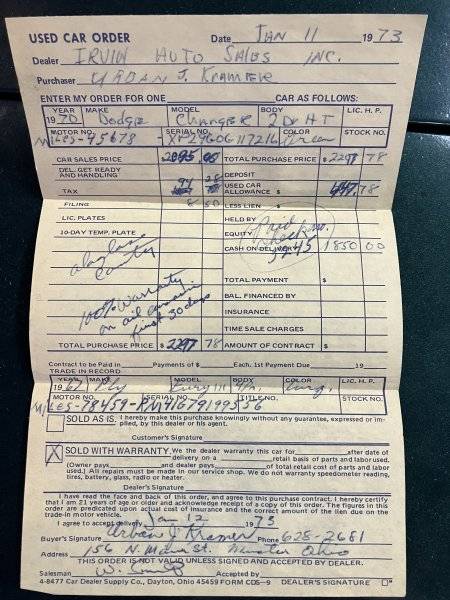 USED CAR ORDER Date JAN 11 1973
Dealer IRVIN AUTO SALES INC.
Purchaser URBAN J. KRAMER
ENTER MY ORDER FOR ONE CAR AS FOLLOWS:
YEAR MAKE MODEL BODY LIC. H. P.
1970 Dodge Charger 2Dr HT
MOTOR NO. SERIAL NO. COLOR STOCK NO.
Miles-45673 XP29G0G117216 Green
CAR SALES PRICE $2095.00 TOTAL PURCHASE PRICE $2297 78
DEL. GET READY AND HANDLING DEPOSIT
TAX 94 28 USED CAR ALLOWANCE $ 447.78
FILING 8 50 LESS LIEN $
LIC. PLATES HELD BY
10-DAY TEMP. PLATE EQUITY
Paid check no. 5245
CASH ON DELIVERY 1850 00
County
TOTAL PAYMENT $
100% Warranty
on
first 30 days
BAL. FINANCED BY
INSURANCE
TIME SALE CHARGES
TOTAL PURCHASE PRICE $2297 78 AMOUNT OF CONTRACT $
Contract to be Paid in Payments of $ Each. 1st Payment Due 19
TRADE IN RECORD
YEAR MAKE MODEL BODY COLOR LIC. H.P.
1967 Ply Fury III
MOTOR NO. SERIAL NO. TITLE NO. STOCK NO.
Miles-78459-PM41G79199556
SOLD AS IS I hereby make this purchase knowingly without any guarantee, expressed or implied, by this dealer or his agent.
Customer's Signature
X SOLD WITH WARRANTY. We the dealer warranty this car for after date of
delivery on a retail basis of parts and labor used.
(Owner pays and dealer pays of total retail cost of parts and labor
used.) All repairs must be made in our service shop. We do not warranty speedometer reading,
tires, battery, glass, radio or heater.
Dealer's Signature
I have read the face and back of this order, and agree to this purchase contract. I hereby certify
that I am 21 years of age or older and acknowledge receipt of a copy of this order. The figures in this
order are predicated upon actual cost of insurance and the correct amount of the lien due on the
trade-in motor vehicle.
I agree to accept delivery Jan 12 1973
Buyer's Signature Urban J Kramer Phone 628-2681
Address 156 N. Main St. Minster Ohio
THIS ORDER IS NOT VALID UNLESS SIGNED AND ACCEPTED BY DEALER.
Salesman W. Accepted by
4-8477 Car Dealer Supply Co., Dayton, Ohio 45459 FORM CDS-9 DEALER'S SIGNATURE